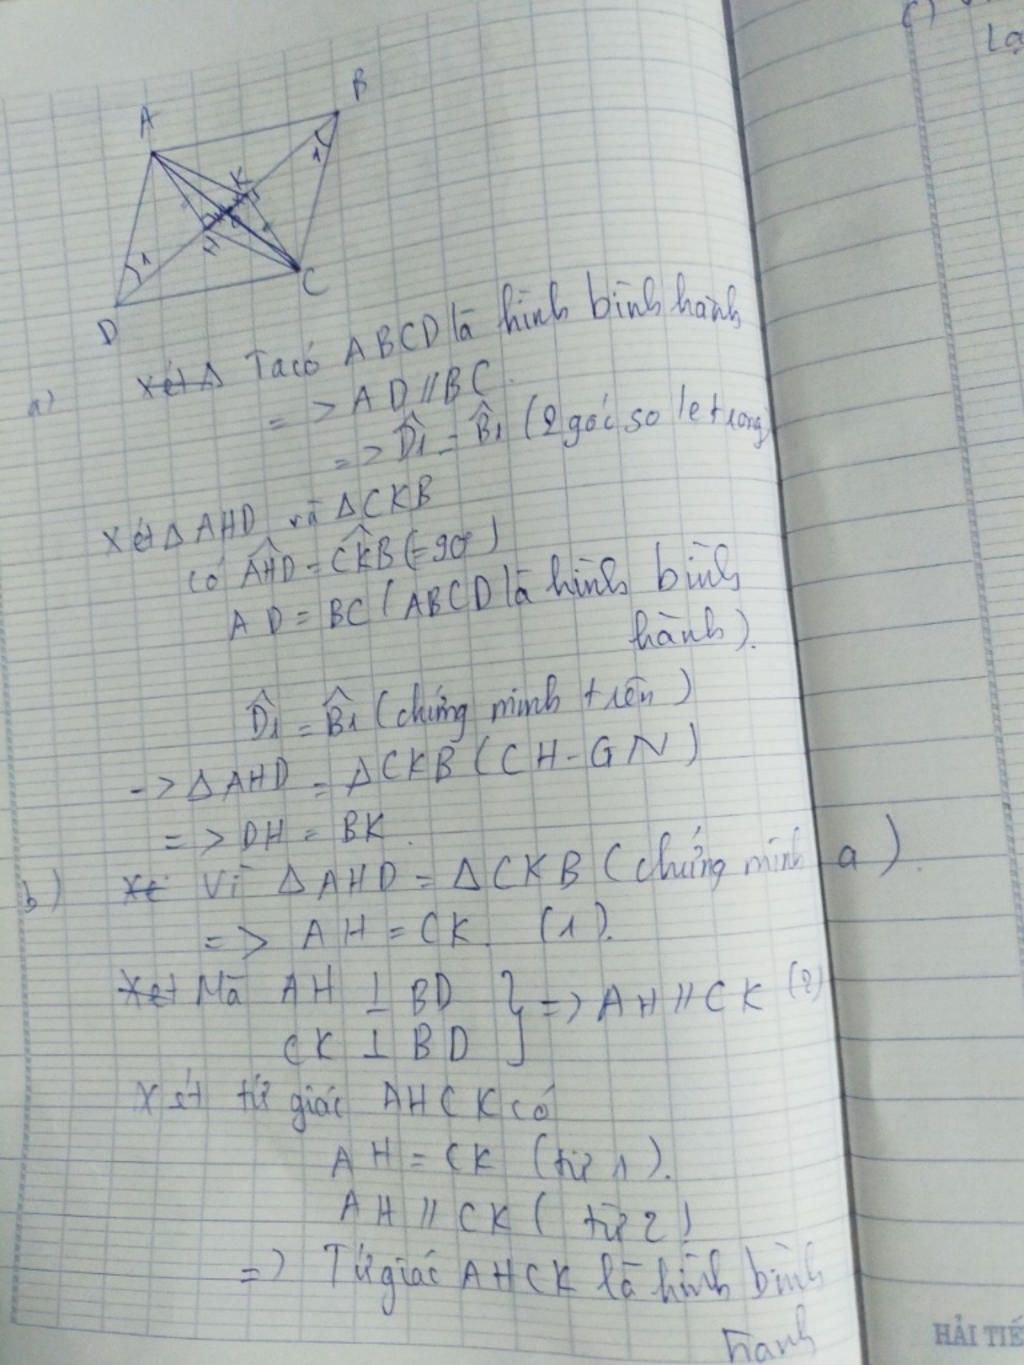 A
B
K
1
H
1
D
C
a) Xét Δ Ta có ABCD là hình bình hành
=> AD // BC.
=> D̂1 = B̂1 (2 góc so le trong)
Xét Δ AHD và Δ CKB
Có AHD̂ = CKB̂ (= 90°)
AD = BC (ABCD là hình bình
hành).
D̂1 = B̂1 (chứng minh trên)
-> Δ AHD = Δ CKB (CH - GN)
=> DH = BK.
b) Xé Vì Δ AHD = Δ CKB (chứng minh a).
=> AH = CK. (1).
Xét Mà AH ⊥ BD } => AH // CK (2)
CK ⊥ BD
Xét tứ giác AHCK có
AH = CK (từ 1).
AH // CK (từ 2)
=> Tứ giác AHCK là hình bình
hành
c)
HẢI TIẾ